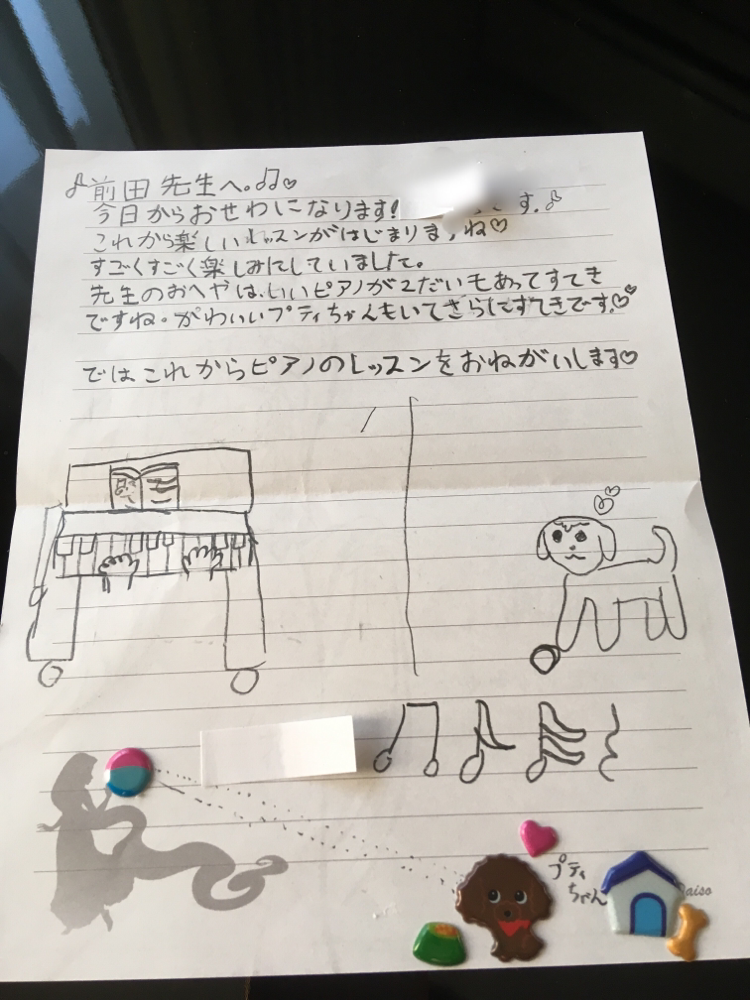 前田 先生へ。
今日からおせわになります! です.
これから楽しいレッスンがはじまりま ね
すごくすごく楽しみにしていました。
先生のおへやは、いいピアノが2だいもあってすてき
ですね。かわいいプティちゃんもいてさらにすてきです。
ではこれからピアノのレッスンをおねがいします
プティ
ちゃん
Daiso